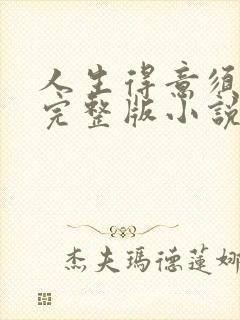 人生得意須
完整版小說
杰夫瑪德蓮娜